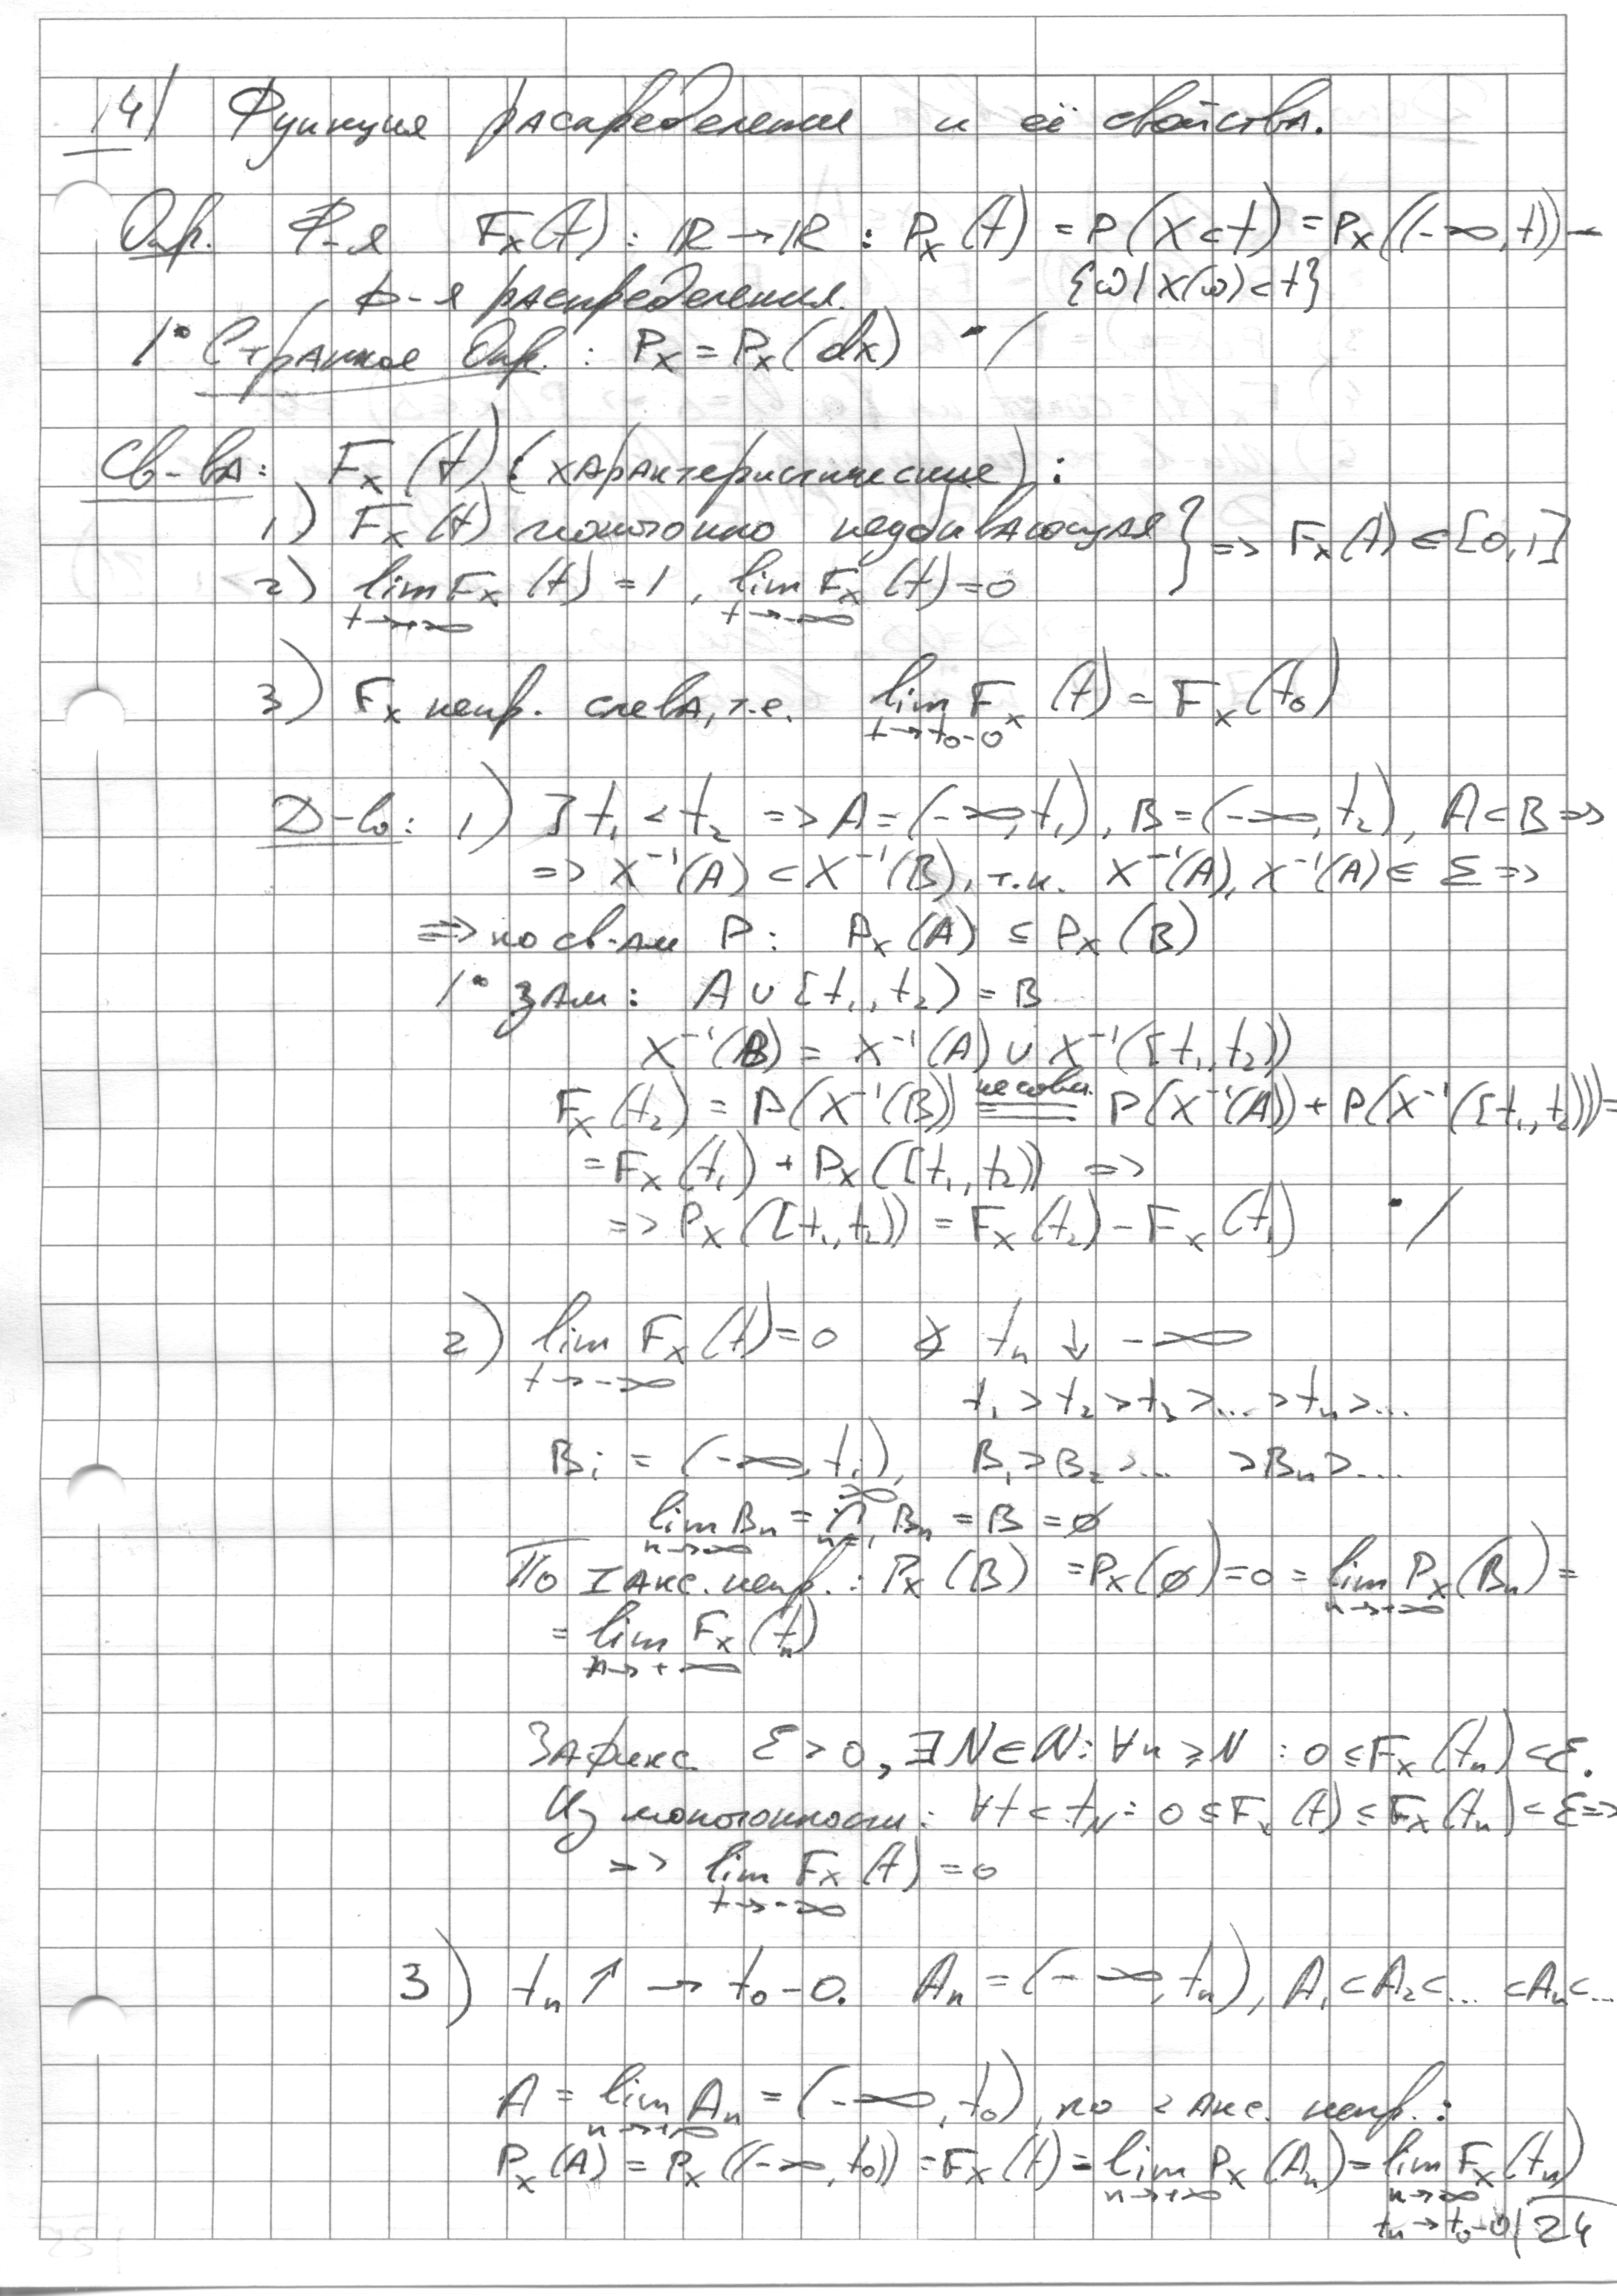 14) Функция распределения и её свойства.
Опр. Ф-я F_X(t): ℝ → ℝ : P_X(t) = P(X < t) = P_X((-∞, t)) –
{ω | X(ω) < t}
ф-я распределения.
/• Странное Опр.: P_X = P_X(dx) •/
Св-ва: F_X(t) (характеристические):
1) F_X(t) монотонно неубывающая } => F_X(t) ∈ [0,1]
2) lim_{t→+∞} F_X(t) = 1, lim_{t→-∞} F_X(t) = 0
3) F_X непр. слева, т.е. lim_{t→t₀-0} F_X(t) = F_X(t₀)
Д-во: 1) ∃ t₁ < t₂ => A = (-∞, t₁), B = (-∞, t₂), A ⊂ B =>
=> X⁻¹(A) ⊂ X⁻¹(B), т.к. X⁻¹(A), X⁻¹(A) ∈ Σ =>
=> по св-ам P: P_X(A) ≤ P_X(B)
/• Зам: A ∪ [t₁, t₂) = B
X⁻¹(B) = X⁻¹(A) ∪ X⁻¹([t₁, t₂))
F_X(t₂) = P(X⁻¹(B)) несовм. = P(X⁻¹(A)) + P(X⁻¹([t₁, t₂))) =
= F_X(t₁) + P_X([t₁, t₂)) =>
=> P_X([t₁, t₂)) = F_X(t₂) - F_X(t₁) •/
2) lim_{t→-∞} F_X(t) = 0 t_n ↓ -∞
t₁ > t₂ > t₃ > ... > t_n > ...
B_i = (-∞, t_i), B₁ ⊃ B₂ ⊃ ... ⊃ B_n ⊃ ...
lim_{n→∞} B_n = ∩_{n=1}^∞ B_n = B = ∅
По I акс. непр.: P_X(B) = P_X(∅) = 0 = lim_{n→+∞} P_X(B_n) =
= lim_{n→+∞} F_X(t_n)
Зафикс. ε > 0, ∃ N ∈ ℕ: ∀n ≥ N : 0 ≤ F_X(t_n) < ε.
Из монотонности: ∀t < t_N: 0 ≤ F_X(t) ≤ F_X(t_n) < ε =>
=> lim_{t→-∞} F_X(t) = 0
3) t_n ↑ → t₀-0. A_n = (-∞, t_n), A₁ ⊂ A₂ ⊂ ... ⊂ A_n ⊂ ...
A = lim_{n→+∞} A_n = (-∞, t₀), по 2 акс. непр.:
P_X(A) = P_X((-∞, t₀)) = F_X(t) = lim_{n→+∞} P_X(A_n) = lim_{n→∞} F_X(t_n)
t_n → t₀-0
24